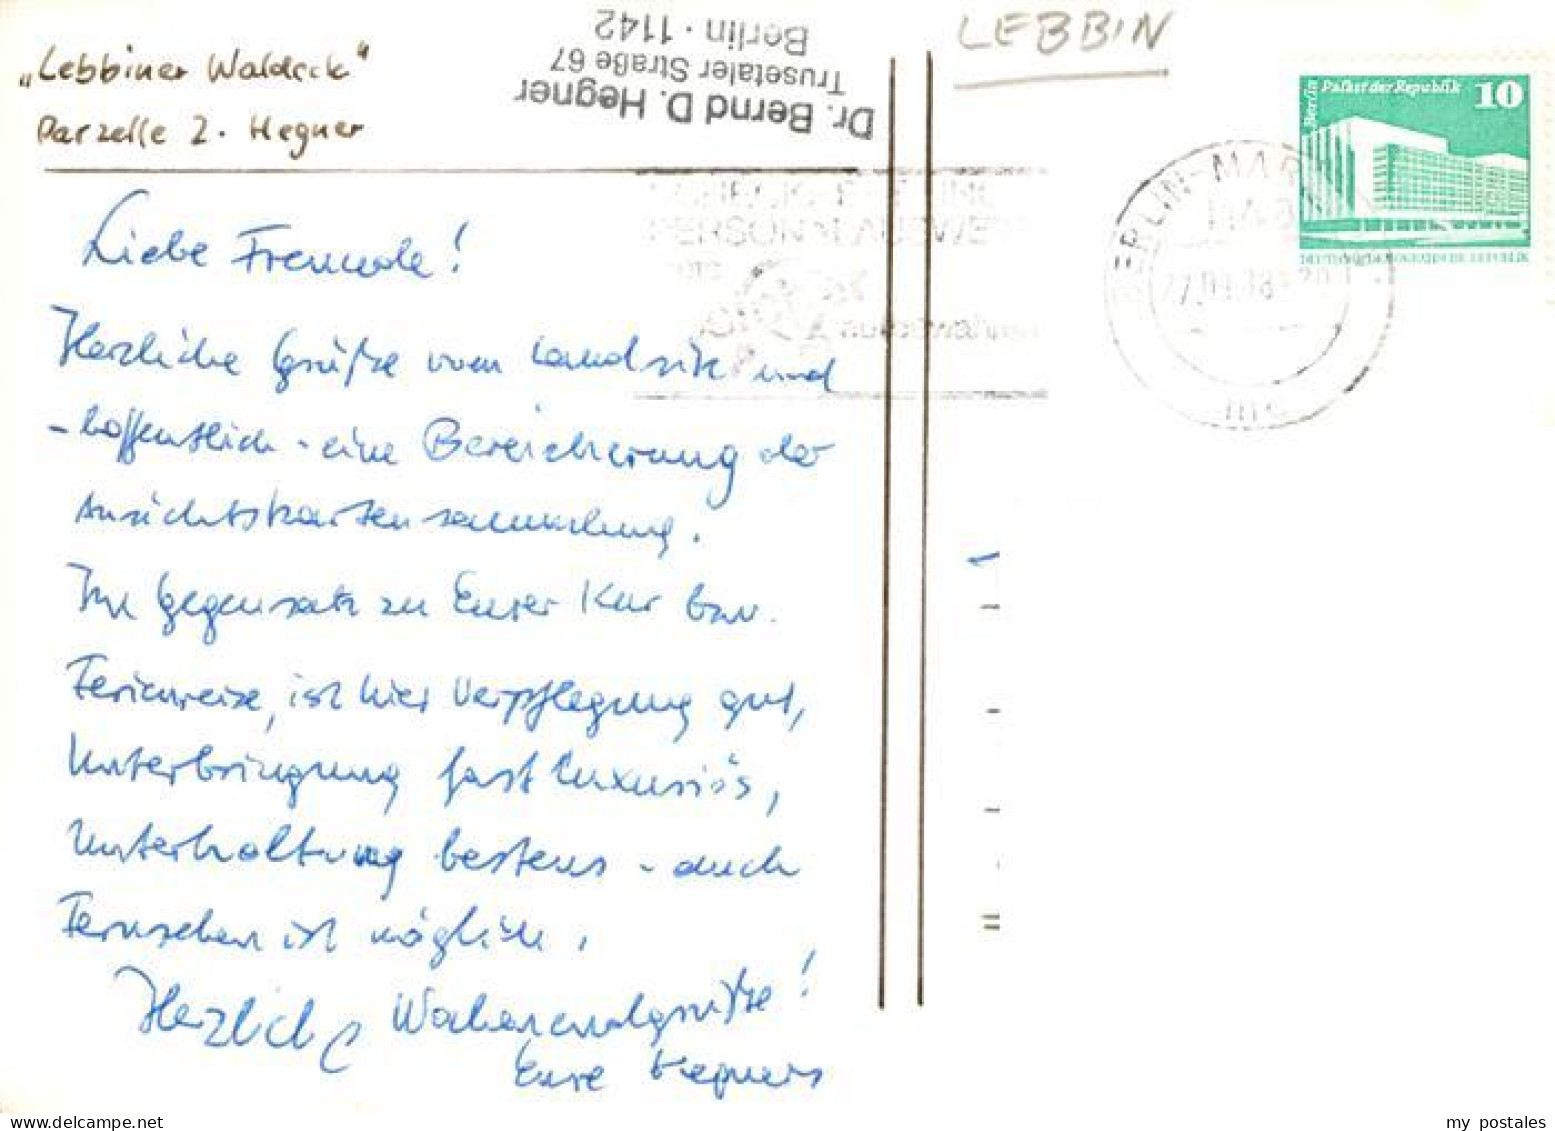 „Lebbiner Waldeck“
Parzelle 2. Hegner
Dr. Bernd D. Hegner
Trusetaler Straße 67
Berlin · 1142
LEBBIN
Berlin Palast der Republik 10
DEUTSCHE DEMOKRATISCHE REPUBLIK
BERLIN-MAR
Liebe Freunde!
Herzliche Grüße vom Landsitz und
- hoffentlich - eine Bereicherung der
Ansichtskartensammlung.
Im Gegensatz zu Eurer Kur bzw.
Ferienreise, ist hier Verpflegung gut,
Unterbringung fast luxuriös,
Unterhaltung bestens - auch
Fernsehen ist möglich.
Herzliche Wochenendgrüße!
Eure Hegners
my postales